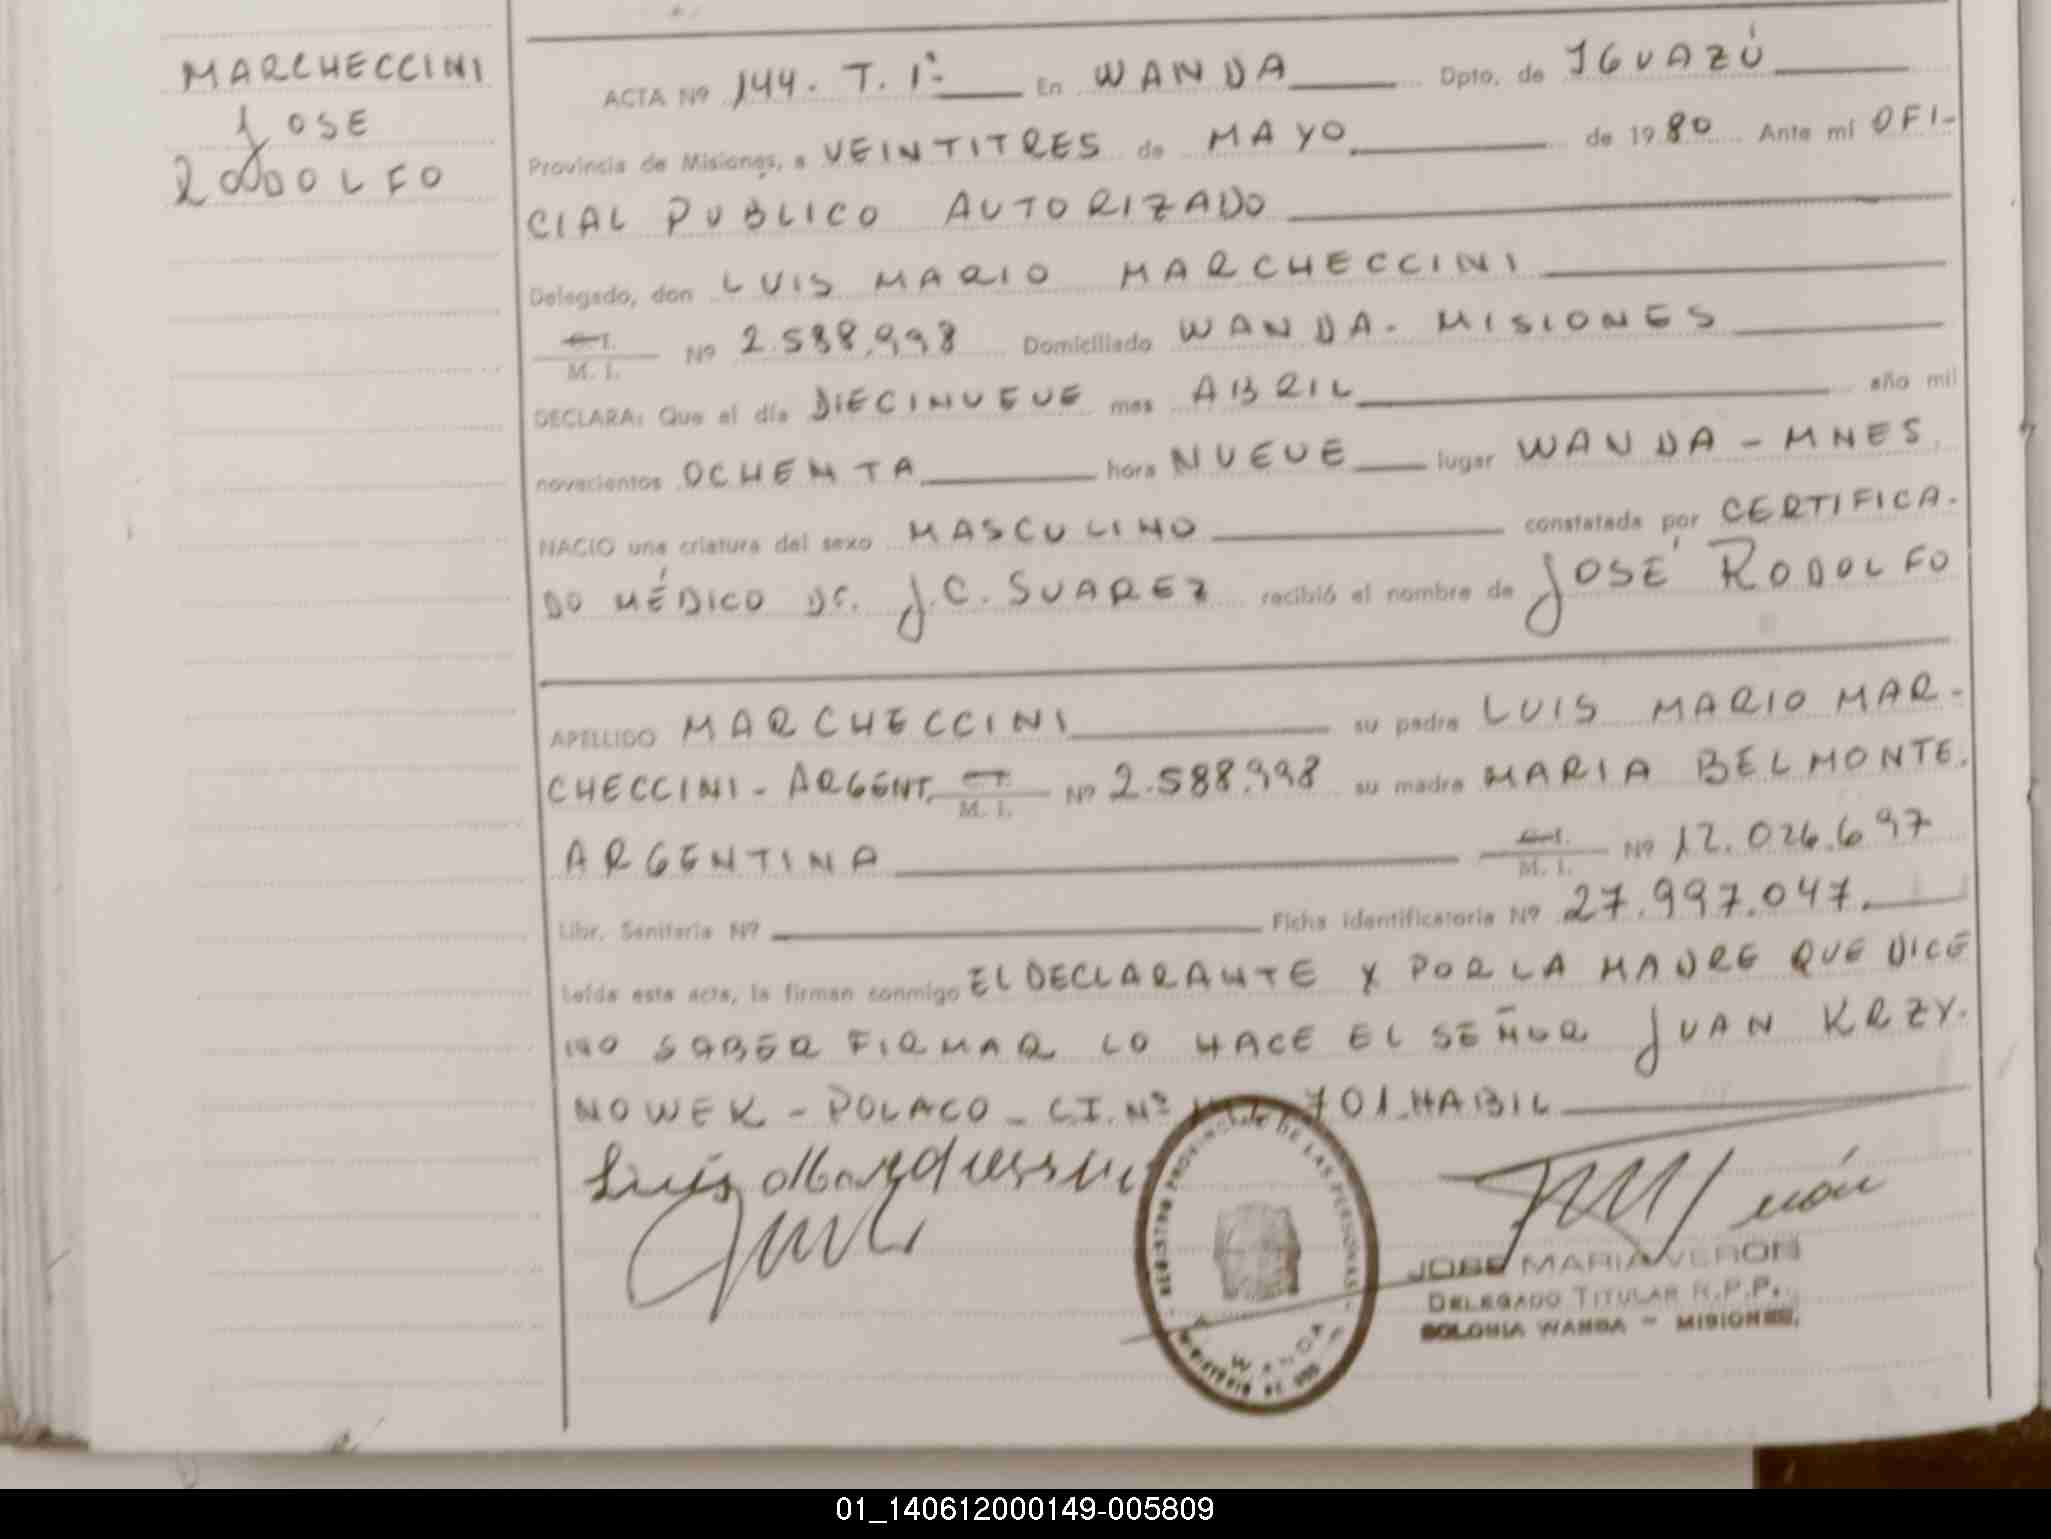 MARCHECCINI
JOSE
RODOLFO
ACTA Nº 144. T. 1º En WANDA Dpto. de IGUAZÚ
Provincia de Misiones, a VEINTITRES de MAYO de 1980 Ante mi OFI-
CIAL PUBLICO AUTORIZADO
Delegado, don LUIS MARIO MARCHECCINI
C.I.
M. I. Nº 2.588.998 Domiciliado WANDA - MISIONES
DECLARA: Que el día DIECINUEVE mes ABRIL año mil
novecientos OCHENTA hora NUEVE lugar WANDA - MNES.
NACIO una criatura del sexo MASCULINO constatada por CERTIFICA-
DO MÉDICO DE. J.C. SUAREZ recibió el nombre de JOSÉ RODOLFO
APELLIDO MARCHECCINI su padre LUIS MARIO MAR-
CHECCINI - ARGENT. C.I.
M. I. Nº 2.588.998 su madre MARIA BELMONTE.
ARGENTINA C.I.
M. I. Nº 12.026.697
Libr. Sanitaria Nº Ficha identificatoria Nº 27.997.047.
Leída esta acta, la firman conmigo EL DECLARANTE Y POR LA MADRE QUE DICE
NO SABER FIRMAR LO HACE EL SEÑOR JUAN KRZY-
NOWEK - POLACO - C.I. Nº 701. HABIL
REGISTRO PROVINCIAL DE LAS PERSONAS
WANDA
JOSE MARIA VERON
DELEGADO TITULAR R.P.P.
COLONIA WANDA - MISIONES.
01_140612000149-005809